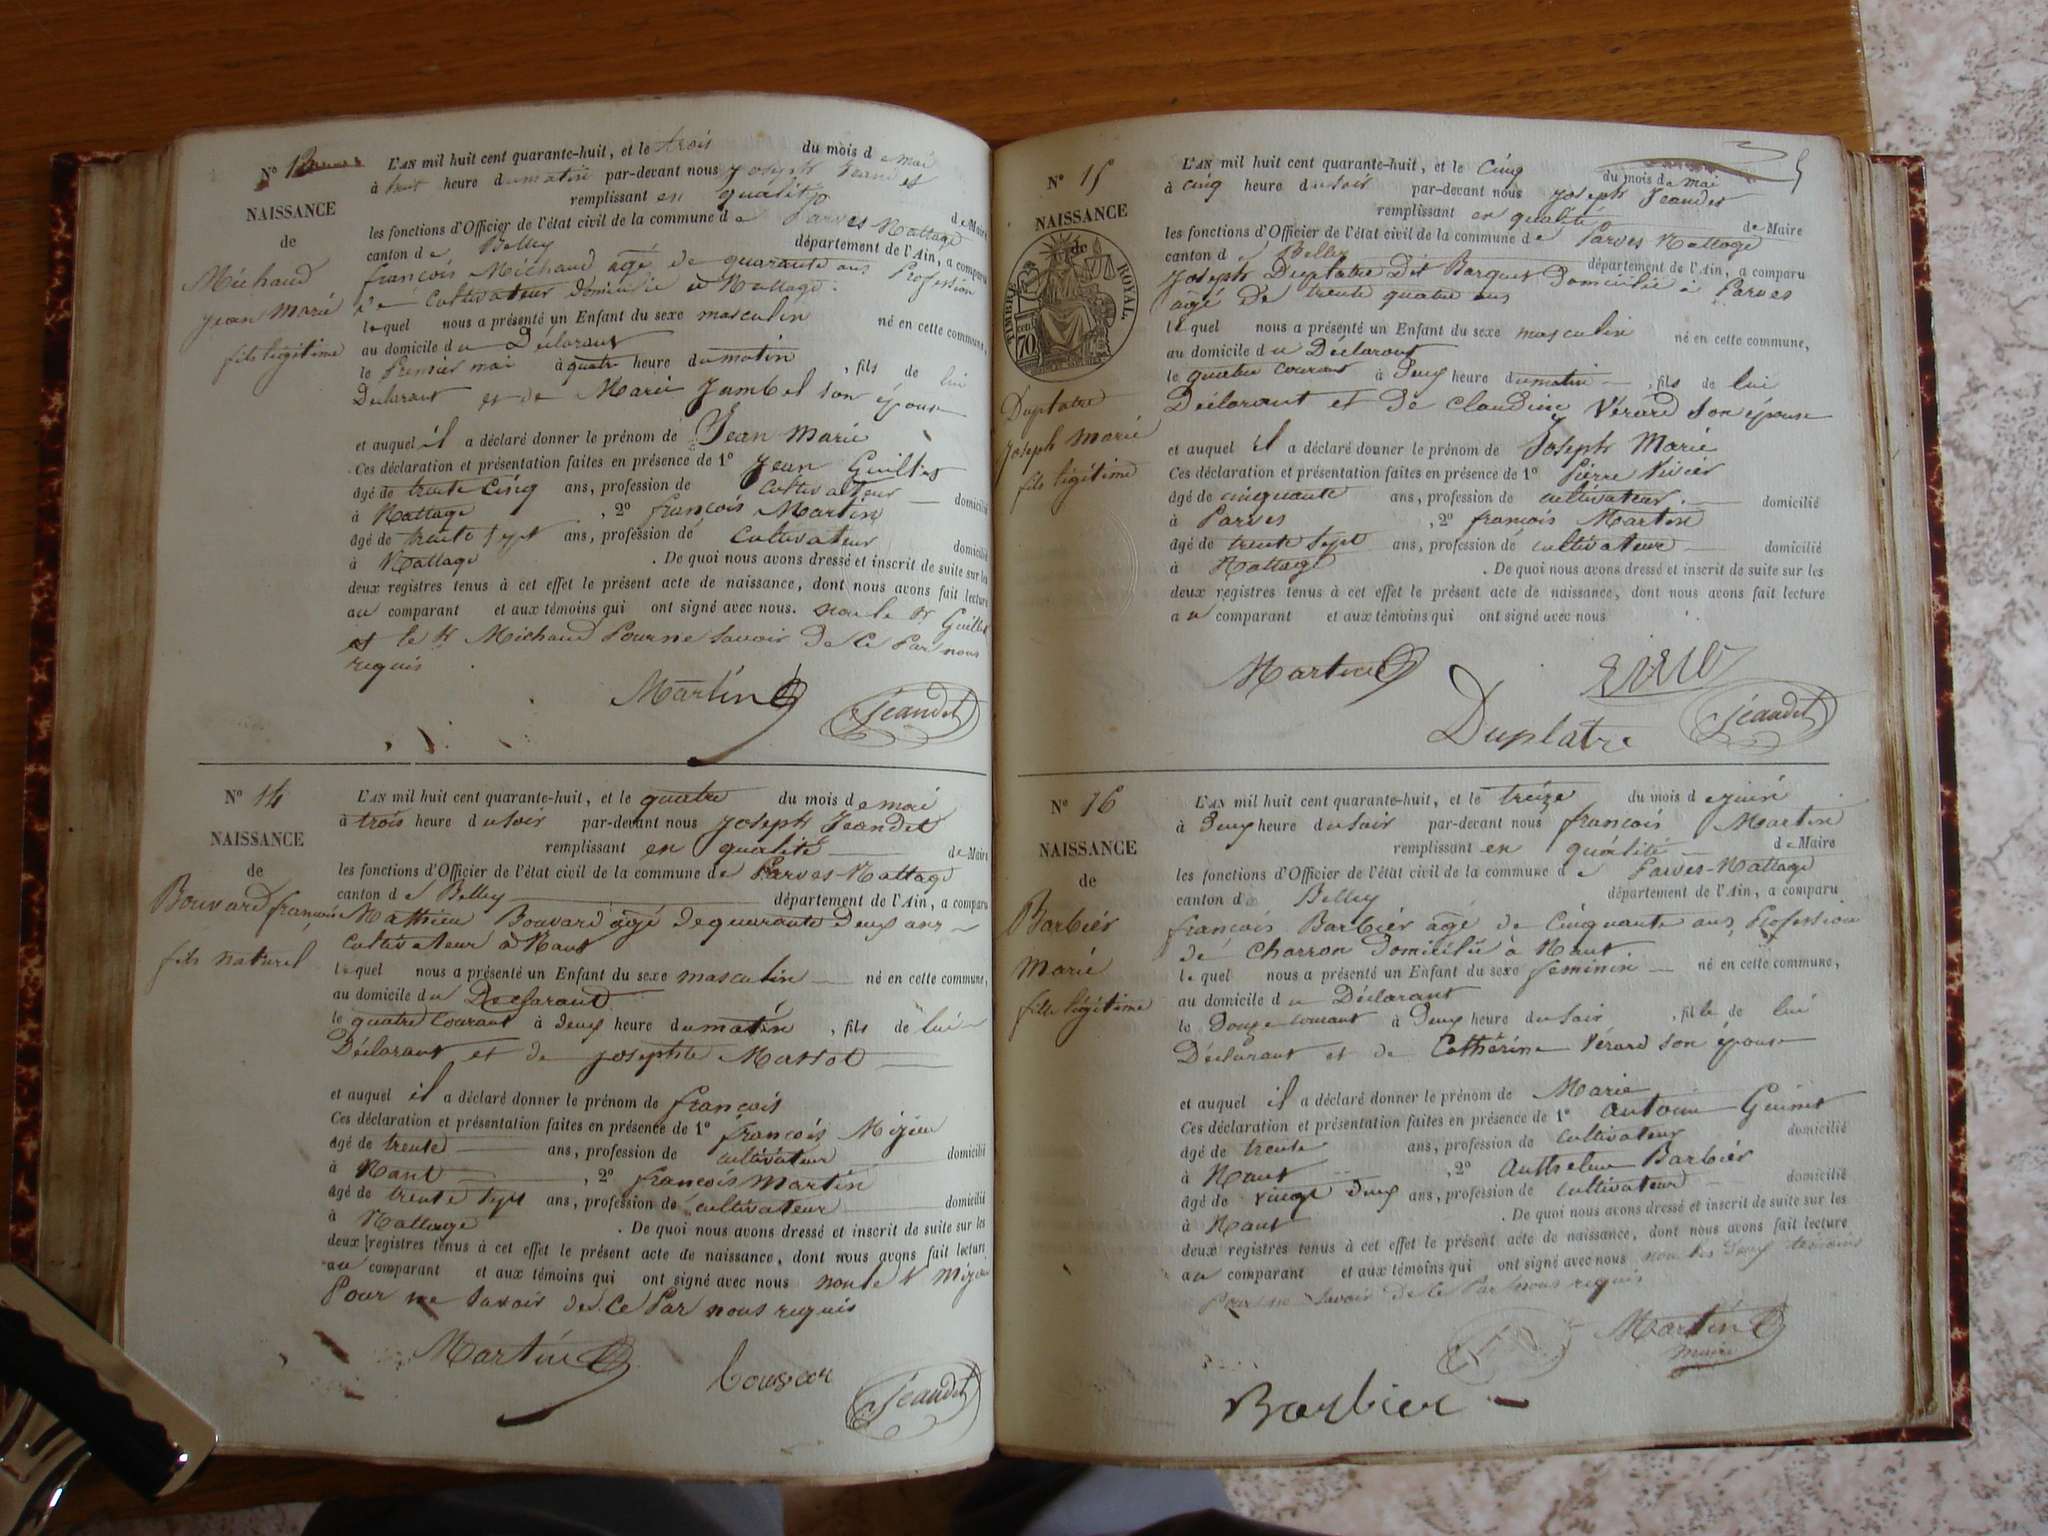 N°
NAISSANCE
de
Michaud
Jean Marie
fils légitime
L'AN mil huit cent quarante-huit, et le trois du mois de mai
à huit heure du matin par-devant nous Joseph Jeandet
remplissant en qualité de Maire
les fonctions d'Officier de l'état civil de la commune de Parves-Nattage
canton de Belley département de l'Ain, a comparu
françois Michaud agé de quarante ans Profession
de Cultivateur domicilié à Nattage.
lequel nous a présenté un Enfant du sexe masculin né en cette commune,
au domicile du Déclarant
le Premier mai à quatre heure du matin, fils de lui
Declarant et de Marie Jambel son épouse
et auquel il a déclaré donner le prénom de Jean Marie
Ces déclaration et présentation faites en présence de 1° Jean Guillet
âgé de trente cinq ans, profession de cultivateur domicilié
à Nattage, 2° françois Martin
âgé de trente sept ans, profession de Cultivateur domicilié
à Nattage. De quoi nous avons dressé et inscrit de suite sur les
deux registres tenus à cet effet le présent acte de naissance, dont nous avons fait lecture
au comparant et aux témoins qui ont signé avec nous. non le Sr Guillet
et le Sr Michaud Pour ne Savoir de Ce Par nous
requis
Martin
Jeandet
N° 14
NAISSANCE
de
Bouvard françois
fils naturel
L'AN mil huit cent quarante-huit, et le quatre du mois de mai
à trois heure du soir par-devant nous Joseph Jeandet
remplissant en qualité de Maire
les fonctions d'Officier de l'état civil de la commune de Parves-Nattage
canton de Belley département de l'Ain, a comparu
Mathieu Bouvard agé de quarante Deux ans
Cultivateur à Nant
lequel nous a présenté un Enfant du sexe masculin né en cette commune,
au domicile du Declarant
le quatre Courant à deux heure du matin, fils de lui
Déclarant et de Josephte Massot
et auquel il a déclaré donner le prénom de françois
Ces déclaration et présentation faites en présence de 1° françois
âgé de trente ans, profession de cultivateur domicilié
à Nant, 2° françois Martin
âgé de trente sept ans, profession de cultivateur domicilié
à Nattage. De quoi nous avons dressé et inscrit de suite sur les
deux registres tenus à cet effet le présent acte de naissance, dont nous avons fait lecture
au comparant et aux témoins qui ont signé avec nous non le Sr
Pour ne Savoir de Ce Par nous requis
Martin
Jeandet
N° 15
NAISSANCE
de
TIMBRE ROYAL
70
Duplatre
Joseph Marie
fils légitime
L'AN mil huit cent quarante-huit, et le cinq du mois de mai
à cinq heure du soir par-devant nous Joseph Jeandet
remplissant en qualité de Maire
les fonctions d'Officier de l'état civil de la commune de Parves Nattage
canton de Belley département de l'Ain, a comparu
Joseph Duplatre Dit Barquet Domicilié à Parves
agé de trente quatre ans
lequel nous a présenté un Enfant du sexe masculin né en cette commune,
au domicile du Déclarant
le quatre courant à Deux heure du matin, fils de lui
Déclarant et de Claudine Vérard son épouse
et auquel il a déclaré donner le prénom de Joseph Marie
Ces déclaration et présentation faites en présence de 1° Pierre
âgé de cinquante ans, profession de cultivateur. domicilié
à Parves, 2° françois Martin
âgé de trente sept ans, profession de cultivateur domicilié
à Nattage. De quoi nous avons dressé et inscrit de suite sur les
deux registres tenus à cet effet le présent acte de naissance, dont nous avons fait lecture
au comparant et aux témoins qui ont signé avec nous
Martin
Duplatre
Jeandet
N° 16
NAISSANCE
de
Barbier
Marie
fille légitime
L'AN mil huit cent quarante-huit, et le treize du mois de juin
à Deux heure du soir par-devant nous françois Martin
remplissant en qualité de Maire
les fonctions d'Officier de l'état civil de la commune de Parves-Nattage
canton de Belley département de l'Ain, a comparu
françois Barbier agé de Cinquante ans Profession
de Charron domicilié à Nant
lequel nous a présenté un Enfant du sexe feminin né en cette commune,
au domicile du Déclarant
le Douze courant à Deux heure du soir, fille de lui
Déclarant et de Cathérine Vérard son épouse
et auquel il a déclaré donner le prénom de Marie
Ces déclaration et présentation faites en présence de 1° Antoine
âgé de trente ans, profession de cultivateur domicilié
à Nant, 2° Anthelme Barbier
âgé de vingt Deux ans, profession de cultivateur domicilié
à Nant. De quoi nous avons dressé et inscrit de suite sur les
deux registres tenus à cet effet le présent acte de naissance, dont nous avons fait lecture
au comparant et aux témoins qui ont signé avec nous non les Deux témoins
Pour ne Savoir de Ce Par nous requis
Martin
maire
Barbier